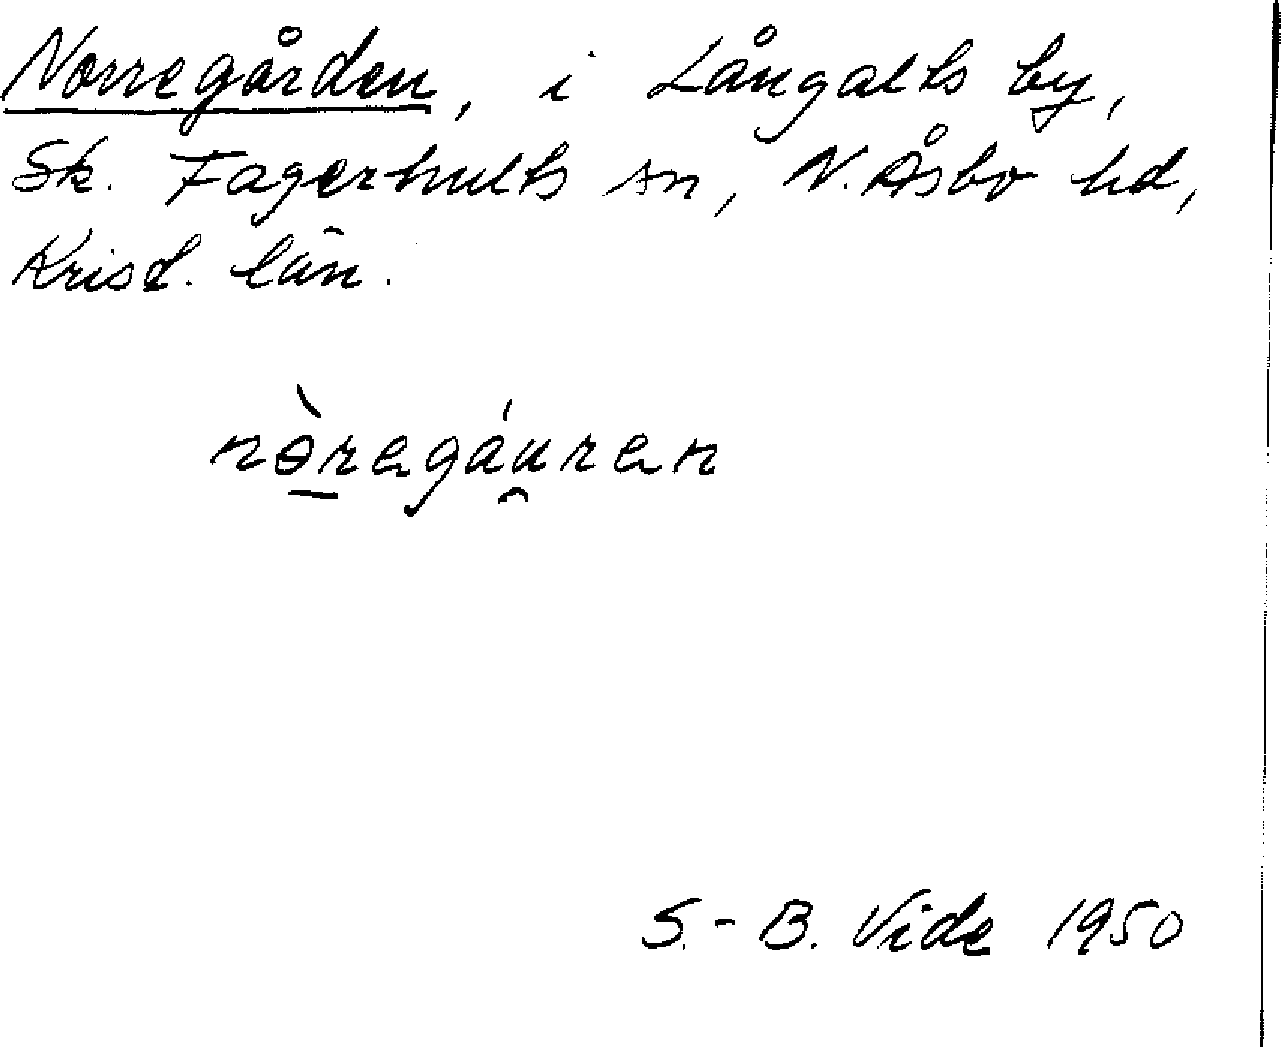 Norregården, i Långalts by,
Sk. Fagerhults sn, N. Åsbo hd,
Krist. län.
nɵ̀regáu̯ren
S.-B. Vide 1950